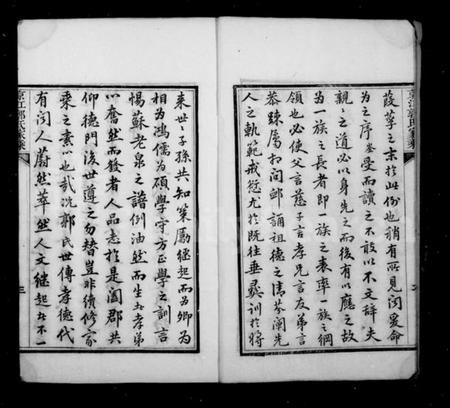 京江郭氏家乘
葭莩之末於此份也稍有所見聞爰命
為之序受而讀之不敢以不文辭夫
親親之道必以身先之而後有以應之故
為一族之長者即一族之表率一族之綱
領也必使父言慈子言孝兄言友弟言
恭疎屬相間卹誦祖德之清芬闡先
人之軌範戒愆尤於既往垂彝訓於將
來世世子孫共知策勵繼起而為卿為
相為鴻儒為碩學守方正學之訓言
惕蘇老泉之譜例油然而生孝弟
以奮然而發者人品志於是闔郡共
仰德門後世遵之勿替豈非續修家
乘之素以也哉况郭氏世傳孝德代
有聞人蔚然萃然人文繼起不一
京江郭氏家乘
三